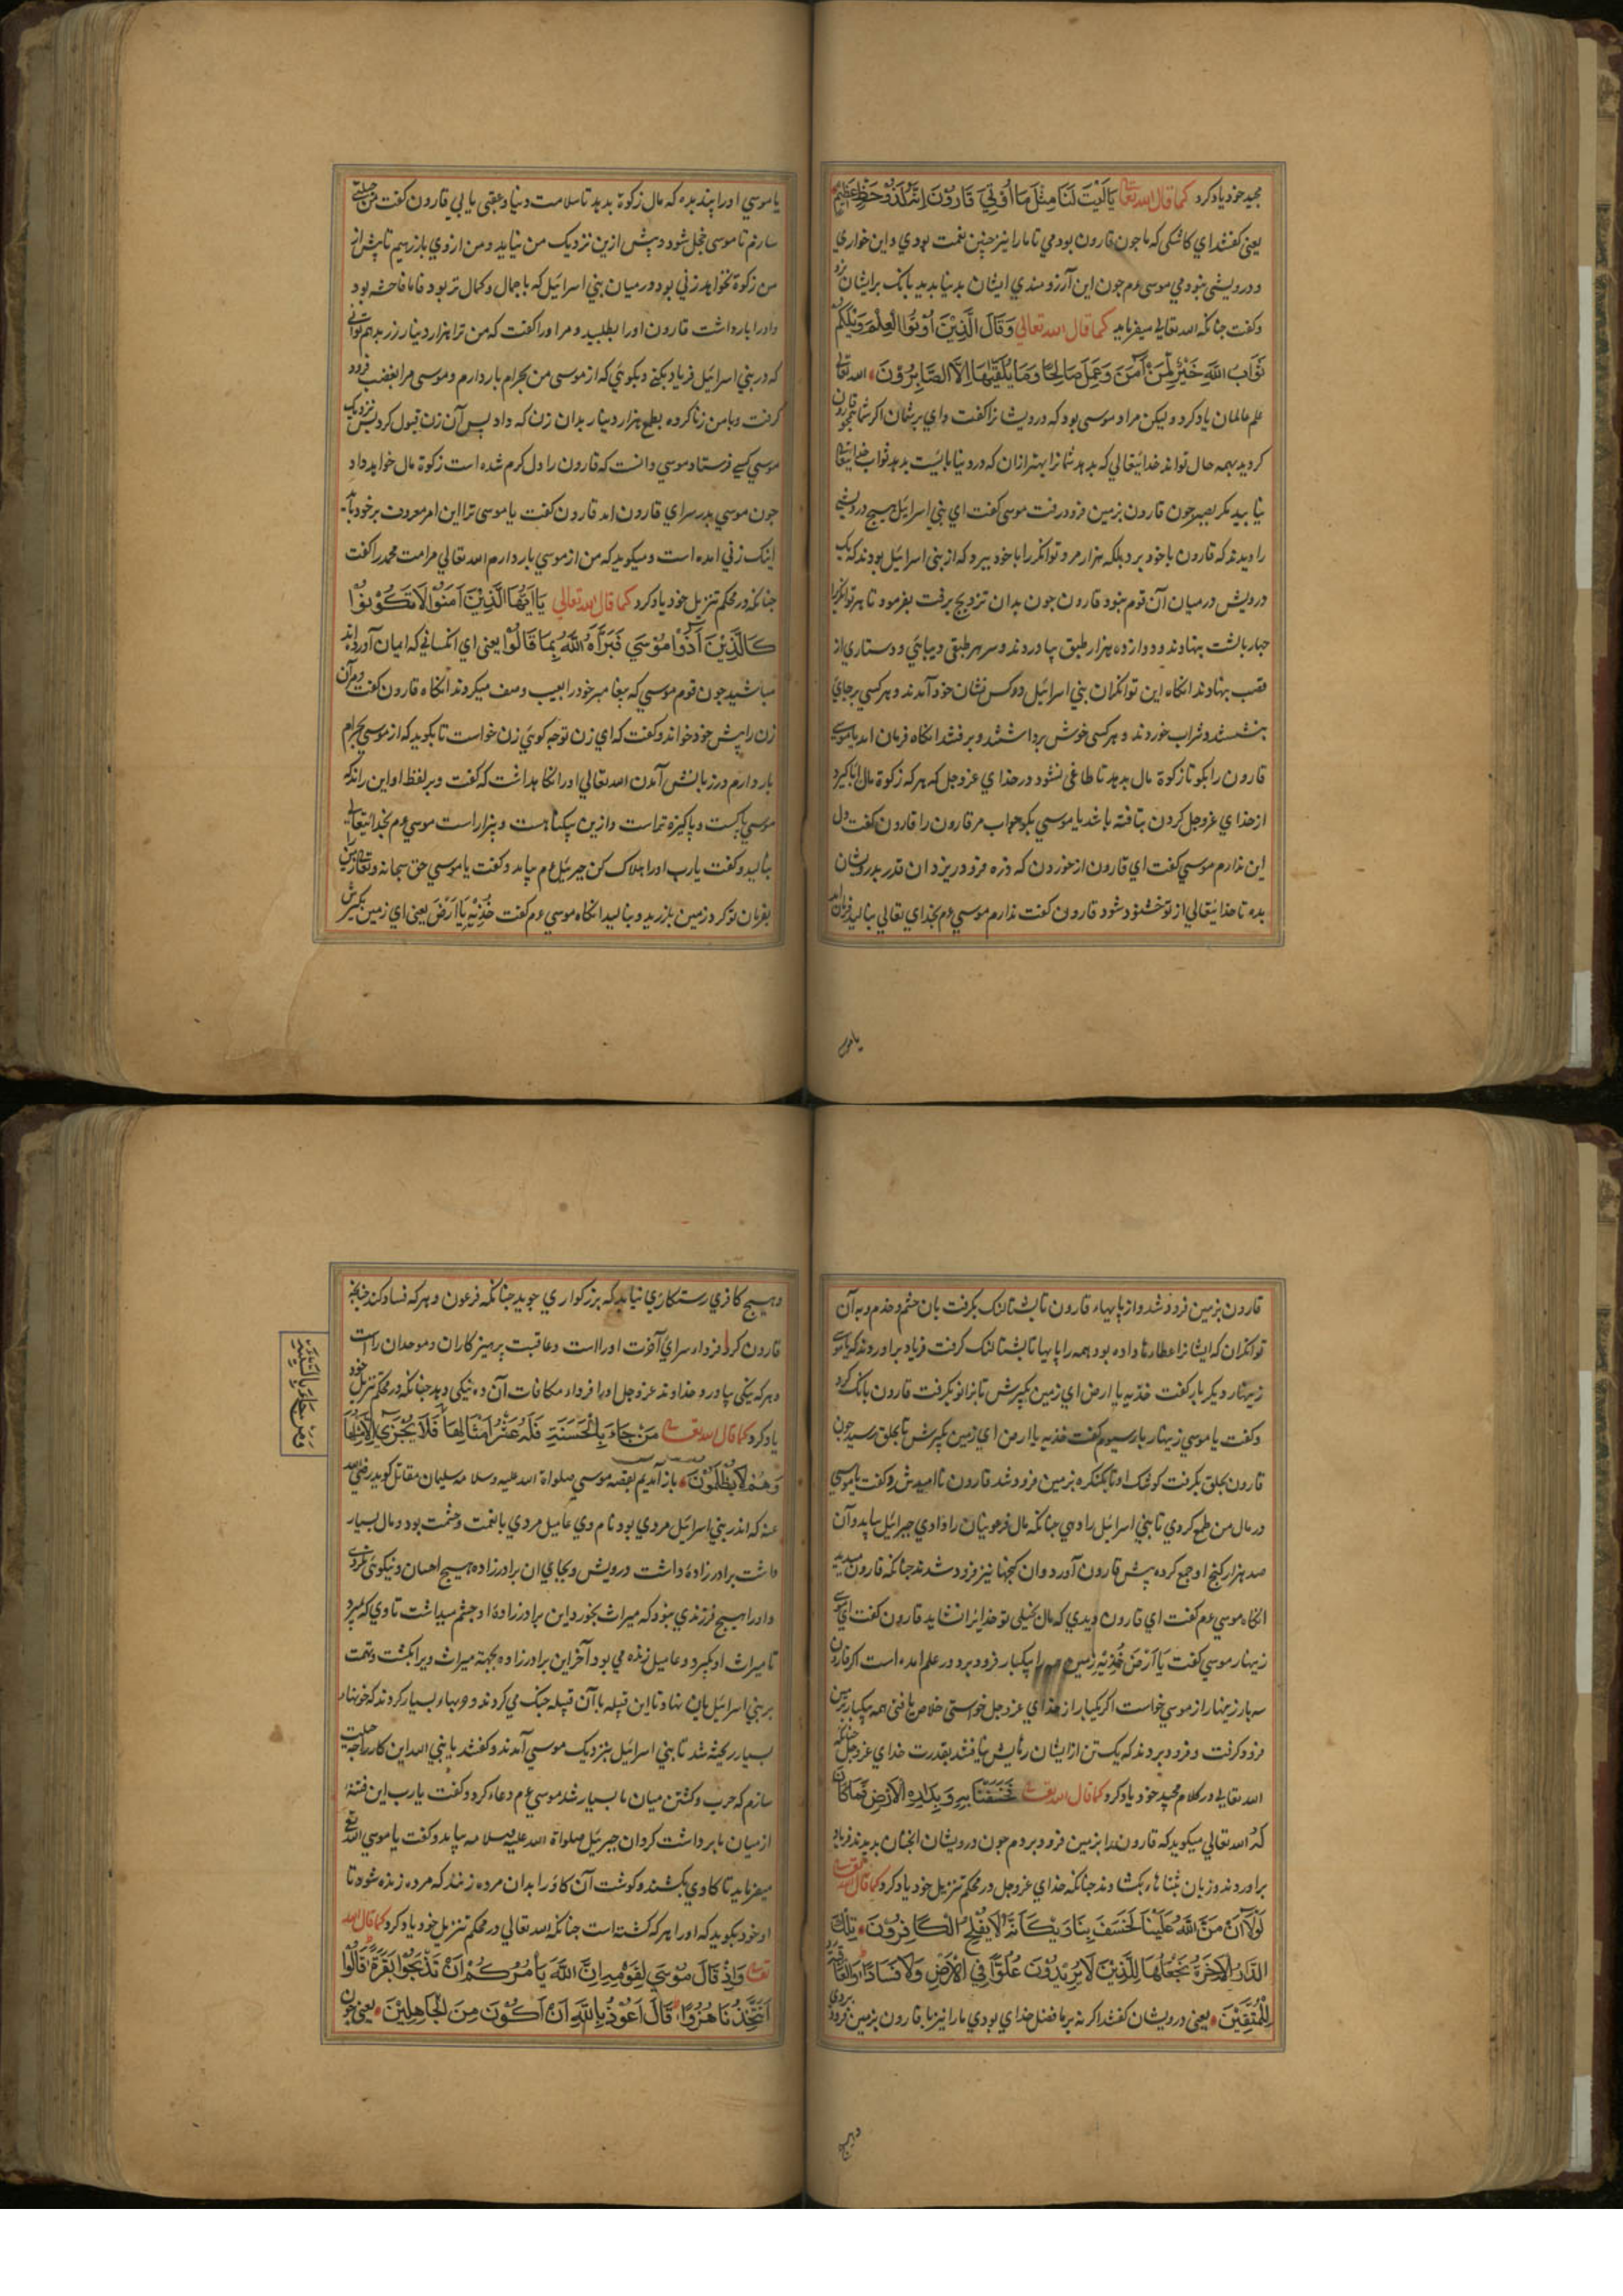 مجید خود یاد کرد کما قال الله تعا یَا لَیْتَ لَنَا مِثْلَ مَا اُوْتِیَ قَارُوْنَ اِنَّهُ لَذُوْ حَظٍّ عَظِیْمٍ
یعنی کفتند ای کاشکی که ما جون قارون بودمی تا ما را نیز جنین نعمت بودی و این خواری
و درویشی نبودمی موسی ءم جون این آرزومندی ایشان بدنیا بدید بانک بر ایشان زد
و کفت جنانکه الله تعالی میفرماید کما قال الله تعالی وَقَالَ الَّذِیْنَ اُوْتُوا الْعِلْمَ وَیْلَکُمْ
ثَوَابُ اللّٰهِ خَیْرٌ لِّمَنْ اٰمَنَ وَعَمِلَ صَالِحًا وَمَا یُلَقّٰیهَا اِلَّا الصَّابِرُوْنَ الله تعالی
علم عالمان یاد کرد و لیکن مراد موسی بود که درویشانرا کفت وای برشان اکر شما همجو قارون
کردید بهمه حال توانذ خدایتعالی که بدهد شما را بهتر ازان که در دنیا بایست بدهد ثواب خدایتعا
نیابید مکر بصبر جون قارون بزمین فرو رفت موسی کفت ای بنی اسرائیل هیج درویشی
را دیدند که قارون با خود برد بلکه هزار مرد توانکر را با خود ببرد که از بنی اسرائیل بودند که یک
درویش درمیان آن قوم نبود قارون جون بدان تزویج برفت بفرمود تا بهر توانکر
جهار بالشت بنهادند و دوازده هزار طبق بیاوردند و سر هر طبقی دیبائی و دستاری از
قصب بنهادند انکاه این توانکران بنی اسرائیل دو کس نشان خود آمدند و هر کسی بر جای
بنشستند و شراب خوردند و هر کسی خوش برداشتند و برفتند انکاه فرمان امد یا موسی
قارون را بکو تا زکوة مال بدهد تا طاغی نشود در خدای عز و جل که هر که زکوة مال باز کیرد
از خدای عز و جل کردن بتافته باشد یا موسی بکو جواب مر قارون را قارون کفت دل
این ندارم موسی کفت ای قارون از خوردن که ذره فرو دریزد ان قدر بدرویشان
بده تا خدایتعالی از تو خشنود شود قارون کفت ندارم موسی ءم بخدای تعالی بنالید فرمان امد
یا موسی
یا موسی او را پند بده که مال زکوة بدید تا سلامت دنیا و عقبی یابی قارون کفت من حیلتی
سازم تا موسی خجل شود و پیش ازین نزدیک من نیاید و من از وی باز رهیم تا پیش از
من زکوة نخواهد زنی بود در میان بنی اسرائیل که با جمال و کمال تر بود فاما فاحشه بود
و او را بار داشت قارون او را بطلبید و مر او را کفت که من ترا هزار دینار زر بدهم توانی
که در بنی اسرائیل فریاد بکنی و بکوئی که از موسی من بحرام بار دارم و موسی مرا بغضب فرود
کرفت و با من زنا کرده بطمع هزار دینار بدان زن که داد پس آن زن قبول کرد پس نزدیک
موسی کسی فرستاد موسی دانست که قارون را دل کرم شده است زکوة مال خواهد داد
جون موسی بدر سرای قارون امد قارون کفت یا موسی ترا این امر معروف بر خود باید
اینک زنی امده است و میکوید که من از موسی بار دارم الله تعالی مر امت محمد را کفت
جنانکه در محکم تنزیل خود یاد کرد کما قال الله تعالی یَا اَیُّهَا الَّذِیْنَ آمَنُوْا لَا تَکُوْنُوْا
کَالَّذِیْنَ آذَوْا مُوْسٰی فَبَرَّاَهُ اللّٰهُ بِمَا قَالُوْا یعنی ای انکسانی که ایمان آورده اند
مباشید جون قوم موسی که بیغامبر خود را بعیب وصف میکردند انکاه قارون کفت و مر آن
زن را پیش خود خواند و کفت که ای زن تو جه کوئی زن خواست تا بکوید که از موسی بحرام
بار دارم در زبانش آمدن الله تعالی او را نکاهداشت که کفت و بر لفظ او این راند که
موسی پاکست و پاکیزه تراست و ازین بیکناهست و بیزار است موسی ءم بخدایتعالی
بنالید و کفت یا رب او را هلاک کن جبرئیل ءم بیامد و کفت یا موسی حق سبحانه و تعالی زمین را
بفرمان تو کرد زمین بلرزید و بنالید انکاه موسی ءم کفت خُذِیْهِ یَا اَرْضُ یعنی ای زمین بکیرش
قارون بزمین فرو شد و از پایهاء قارون تا بشتالنک بکرفت بان حشم و خدم و به آن
توانکران که ایشانرا عطا رها داده بود همه را پایها تا بشتالنک کرفت فریاد براوردند که یا موسی
زینهار دیکر بار کفت خذیه یا ارض ای زمین بکیرش تا بزانو بکرفت قارون بانک کرد
و کفت یا موسی زینهار بار سیوم کفت خذیه یا ارض ای زمین بکیرش تا بحلق رسید جون
قارون بحلق بکرفت کوشک او تا بکنکره بزمین فرو شد قارون نا امید شد و کفت یا موسی
در مال من طمع کردی تا بنی اسرائیل را دهی جنانکه مال فرعونیان را دادی جبرائیل بیامد و آن
صد هزار کنج او جمع کرده پیش قارون آورد و ان کنجها نیز فرو شدند جنانکه قارون میدید
انکاه موسی ءم کفت ای قارون دیدی که مال بخیلی تو خدایرا نشاید قارون کفت ای موسی
زینهار موسی کفت یَا اَرْضُ خُذِیْهِ زمین را بیکبار فرو برد در علم امده است اکر قارون
سه بار زینهار از موسی خواست اکر یکبار از خدای عز و جل خواستی خلاص یافتی همه بیکبار بزمین
فرو کرفت و فرو بردند که یک تن از ایشان رهایش نیافتند بقدرت خدای عز و جل جنانکه
الله تعالی در کلام مجید خود یاد کرد کما قال الله تعا فَخَسَفْنَا بِهِ وَبِدَارِهِ الْاَرْضَ فَمَا کَانَ
که الله تعالی میکوید که قارون را بزمین فرو بردم جون درویشان انجنان بدیدند فریاد
براوردند و زبان بثناهاء بکشادند جنانکه خدای عز و جل در محکم تنزیل خود یاد کرد کما قال الله تعا
لَوْلَا اَنْ مَنَّ اللّٰهُ عَلَیْنَا لَخَسَفَ بِنَا وَیْکَاَنَّهُ لَا یُفْلِحُ الْکَافِرُوْنَ تِلْکَ
الدَّارُ الْاٰخِرَةُ نَجْعَلُهَا لِلَّذِیْنَ لَا یُرِیْدُوْنَ عُلُوًّا فِی الْاَرْضِ وَلَا فَسَادًا وَالْعَاقِبَةُ
لِلْمُتَّقِیْنَ یعنی درویشان کفتند اکر نه بر ما فضل خدای بودی ما را نیز با قارون بزمین فرو بردی
و هیج
و هیج کافری رستکاری نیابد که بزرکواری جوید جنانکه فرعون و هر که فساد کند جنانکه
قارون کرد فرداء سرای آخرت او را است و عاقبت پرهیزکاران و موحدان راست
و هر که نیکی بیاورد خداوند عز و جل او را فرداء مکافات آن ده نیکی دهد جنانکه در محکم تنزیل خود
یاد کرد کما قال الله تعا مَنْ جَاءَ بِالْحَسَنَةِ فَلَهُ عَشْرُ اَمْثَالِهَا فَلَا یُجْزٰی اِلَّا مِثْلَهَا
وَهُمْ لَا یُظْلَمُوْنَ باز آمدیم بقصه موسی صلواة الله علیه و سلامه سلیمان مقاتل کوید رضی الله
عنه که اندر بنی اسرائیل مردی بود نام وی عامیل مردی با نعمت و حشمت بود و مال بسیار
داشت برادر زادهٔ داشت درویش و بجای ان برادر زاده هیج احسان و نیکوئی نکردی
و او را هیج فرزندی نبود که میراث بخورد این برادر زادهٔ او جشم میداشت تا وی که بمیرد
تا میراث او بکیرد و عامیل زنده می بود آخر این برادر زاده بجهتهٔ میراث ویرا بکشت و تهمت
بر بنی اسرائیلیان نهاد تا این قبیله با آن قبیله جنک می کردند و حربهاء بسیار کردند که خونهاء
بسیار ریخته شد تا بنی اسرائیل بنزدیک موسی آمدند و کفتند یا نبی الله این کار را جه حیلت
سازم که حرب و کشتن میان ما بسیار شد موسی ءم دعاء کرد و کفت یا رب این فتنه
از میان ما برداشت کردان جبرئیل صلواة الله علیه و سلامه بیامد و کفت یا موسی الله تعا
میفرماید تا کاوی بکشند و کوشت آن کاو را بدان مرده زنند که مرده زنده شود تا
او خود بکوید که او را هر که کشته است جنانکه الله تعالی در محکم تنزیل خود یاد کرد کما قال الله
تعا وَاِذْ قَالَ مُوْسٰی لِقَوْمِهِ اِنَّ اللّٰهَ یَاْمُرُکُمْ اَنْ تَذْبَحُوْا بَقَرَةً قَالُوْا
اَتَتَّخِذُنَا هُزُوًا قَالَ اَعُوْذُ بِاللّٰهِ اَنْ اَکُوْنَ مِنَ الْجَاهِلِیْنَ یعنی جون
وَمَنْ جَاءَ بِالسَّیِّئَةِ